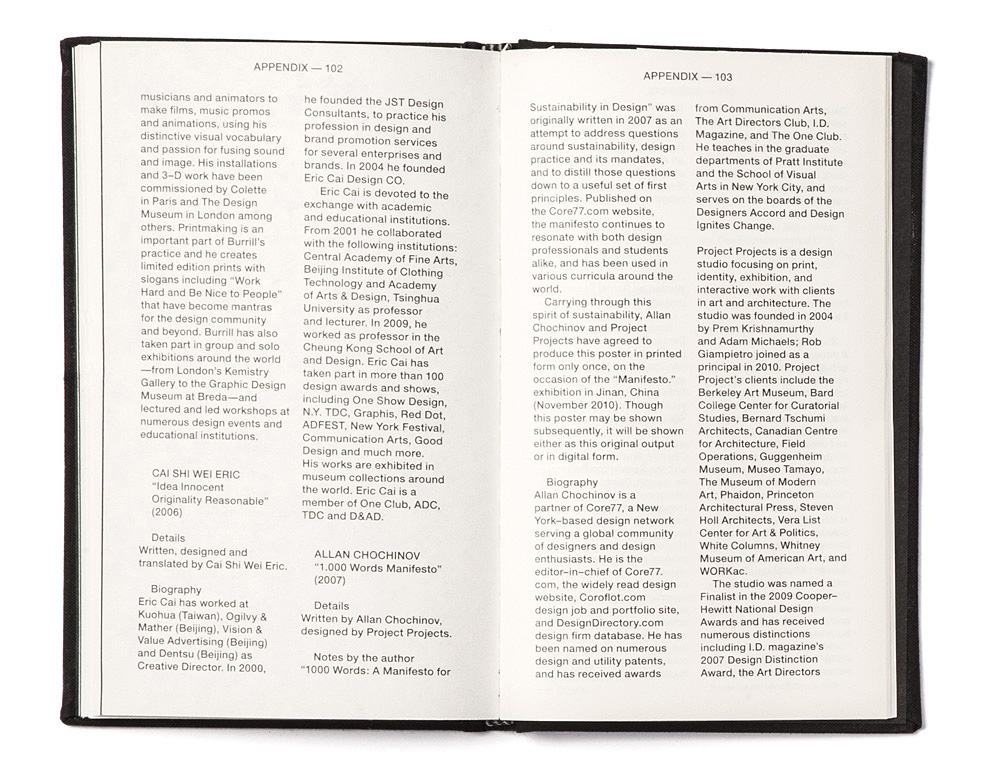 APPENDIX — 102
musicians and animators to
make films, music promos
and animations, using his
distinctive visual vocabulary
and passion for fusing sound
and image. His installations
and 3–D work have been
commissioned by Colette
in Paris and The Design
Museum in London among
others. Printmaking is an
important part of Burrill's
practice and he creates
limited edition prints with
slogans including “Work
Hard and Be Nice to People”
that have become mantras
for the design community
and beyond. Burrill has also
taken part in group and solo
exhibitions around the world
—from London's Kemistry
Gallery to the Graphic Design
Museum at Breda—and
lectured and led workshops at
numerous design events and
educational institutions.
CAI SHI WEI ERIC
“Idea Innocent
Originality Reasonable”
(2006)
Details
Written, designed and
translated by Cai Shi Wei Eric.
Biography
Eric Cai has worked at
Kuohua (Taiwan), Ogilvy &
Mather (Beijing), Vision &
Value Advertising (Beijing)
and Dentsu (Beijing) as
Creative Director. In 2000,
he founded the JST Design
Consultants, to practice his
profession in design and
brand promotion services
for several enterprises and
brands. In 2004 he founded
Eric Cai Design CO.
Eric Cai is devoted to the
exchange with academic
and educational institutions.
From 2001 he collaborated
with the following institutions:
Central Academy of Fine Arts,
Beijing Institute of Clothing
Technology and Academy
of Arts & Design, Tsinghua
University as professor
and lecturer. In 2009, he
worked as professor in the
Cheung Kong School of Art
and Design. Eric Cai has
taken part in more than 100
design awards and shows,
including One Show Design,
N.Y. TDC, Graphis, Red Dot,
ADFEST, New York Festival,
Communication Arts, Good
Design and much more.
His works are exhibited in
museum collections around
the world. Eric Cai is a
member of One Club, ADC,
TDC and D&AD.
ALLAN CHOCHINOV
“1.000 Words Manifesto”
(2007)
Details
Written by Allan Chochinov,
designed by Project Projects.
Notes by the author
“1000 Words: A Manifesto for
APPENDIX — 103
Sustainability in Design” was
originally written in 2007 as an
attempt to address questions
around sustainability, design
practice and its mandates,
and to distill those questions
down to a useful set of first
principles. Published on
the Core77.com website,
the manifesto continues to
resonate with both design
professionals and students
alike, and has been used in
various curricula around the
world.
Carrying through this
spirit of sustainability, Allan
Chochinov and Project
Projects have agreed to
produce this poster in printed
form only once, on the
occasion of the “Manifesto.”
exhibition in Jinan, China
(November 2010). Though
this poster may be shown
subsequently, it will be shown
either as this original output
or in digital form.
Biography
Allan Chochinov is a
partner of Core77, a New
York–based design network
serving a global community
of designers and design
enthusiasts. He is the
editor–in–chief of Core77.
com, the widely read design
website, Coroflot.com
design job and portfolio site,
and DesignDirectory.com
design firm database. He has
been named on numerous
design and utility patents,
and has received awards
from Communication Arts,
The Art Directors Club, I.D.
Magazine, and The One Club.
He teaches in the graduate
departments of Pratt Institute
and the School of Visual
Arts in New York City, and
serves on the boards of the
Designers Accord and Design
Ignites Change.
Project Projects is a design
studio focusing on print,
identity, exhibition, and
interactive work with clients
in art and architecture. The
studio was founded in 2004
by Prem Krishnamurthy
and Adam Michaels; Rob
Giampietro joined as a
principal in 2010. Project
Project's clients include the
Berkeley Art Museum, Bard
College Center for Curatorial
Studies, Bernard Tschumi
Architects, Canadian Centre
for Architecture, Field
Operations, Guggenheim
Museum, Museo Tamayo,
The Museum of Modern
Art, Phaidon, Princeton
Architectural Press, Steven
Holl Architects, Vera List
Center for Art & Politics,
White Columns, Whitney
Museum of American Art, and
WORKac.
The studio was named a
Finalist in the 2009 Cooper–
Hewitt National Design
Awards and has received
numerous distinctions
including I.D. magazine's
2007 Design Distinction
Award, the Art Directors